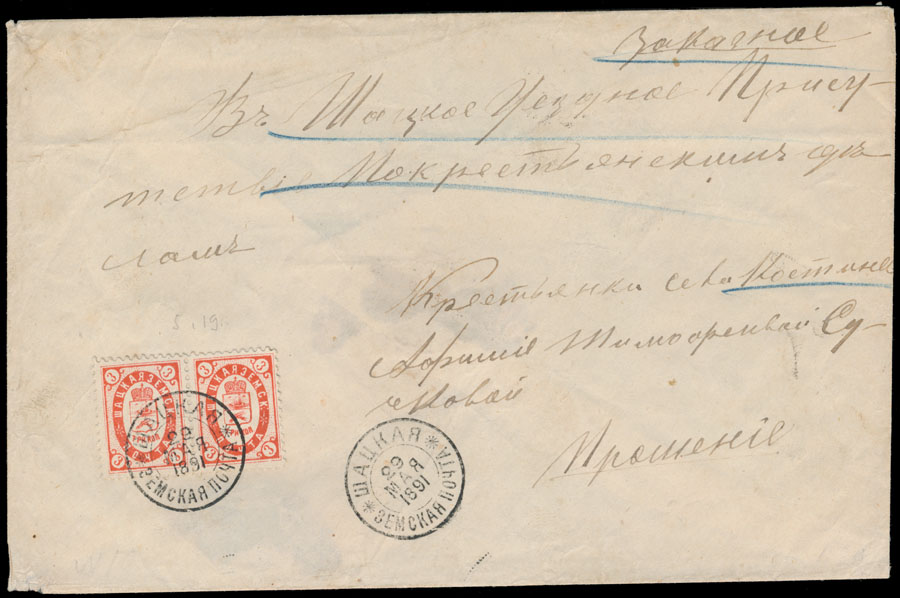 Заказное
Въ Шацкое Уездное Прису-
тствіе Покрестьянскимъ дѣ
ламъ
Крестьянки села Костина
Тимофеевой Су-
новой
Прошеніе
5.19.
3 3 3 3
ШАЦКАЯ ЗЕМСК ПОЧТА
ШАЦКАЯ ЗЕМСК ПОЧТА
ШАЦКАЯ
29
МАЯ
1891
ЗЕМСКАЯ ПОЧТА
ШАЦКАЯ
29
МАЯ
1891
ЗЕМСКАЯ ПОЧТА